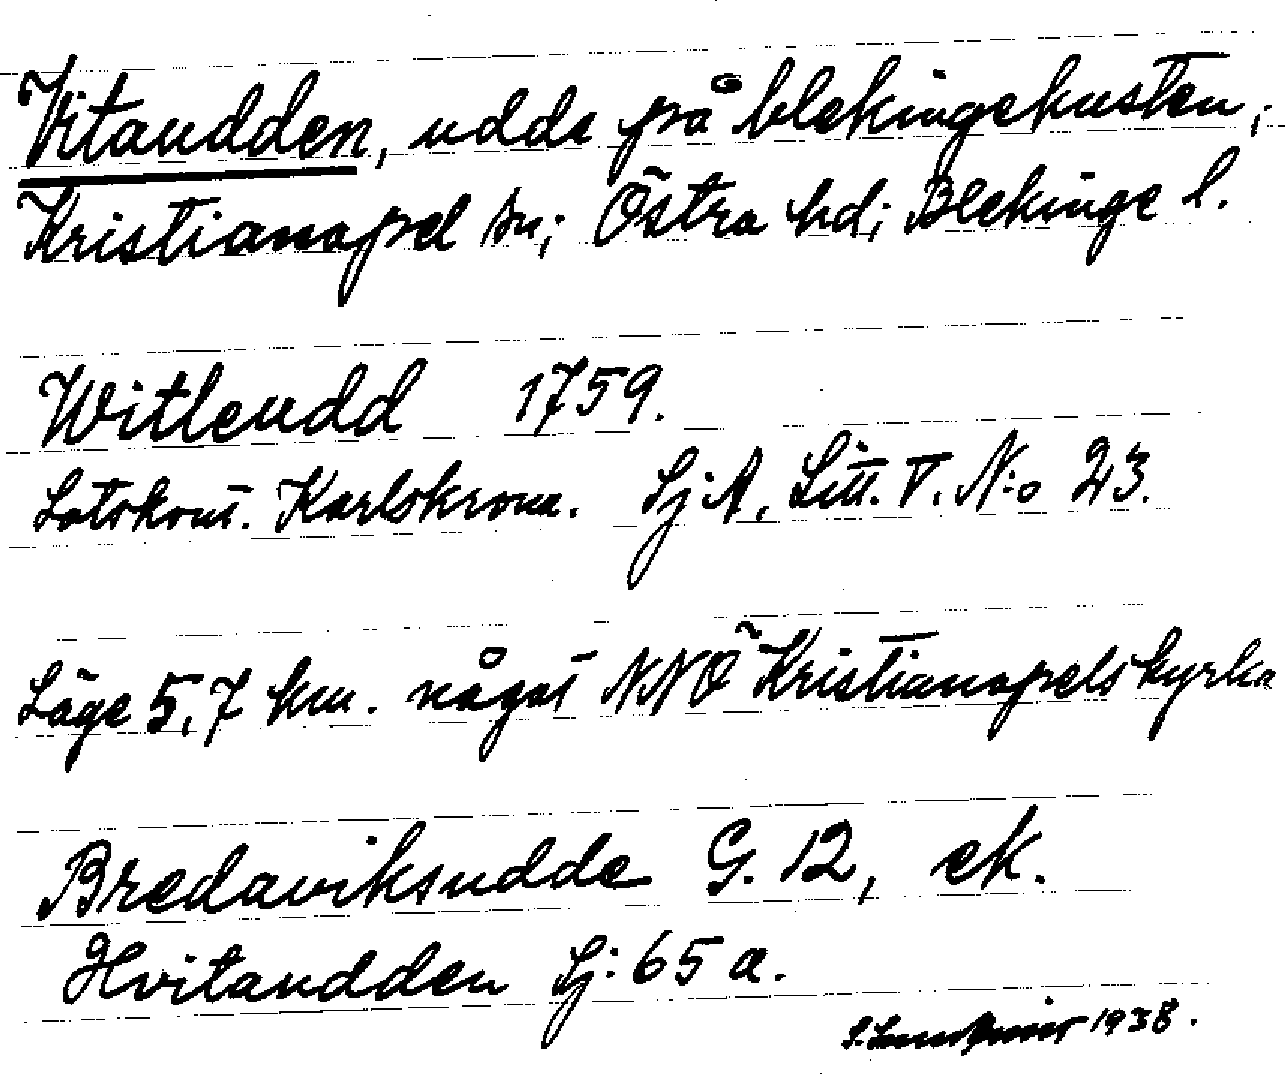 Vitaudden, udde på blekingekusten,
Kristianopel sn; Östra hd; Blekinge l.
Witleudd 1759.
Lotskont. Karlskrona. Sj:A, Litt. V. N:o 23.
Läge 5,7 km. något NNÖ Kristianopels kyrka
Bredaviksudde G. 12, ek.
Hvitaudden Sj: 65 a.
1938.